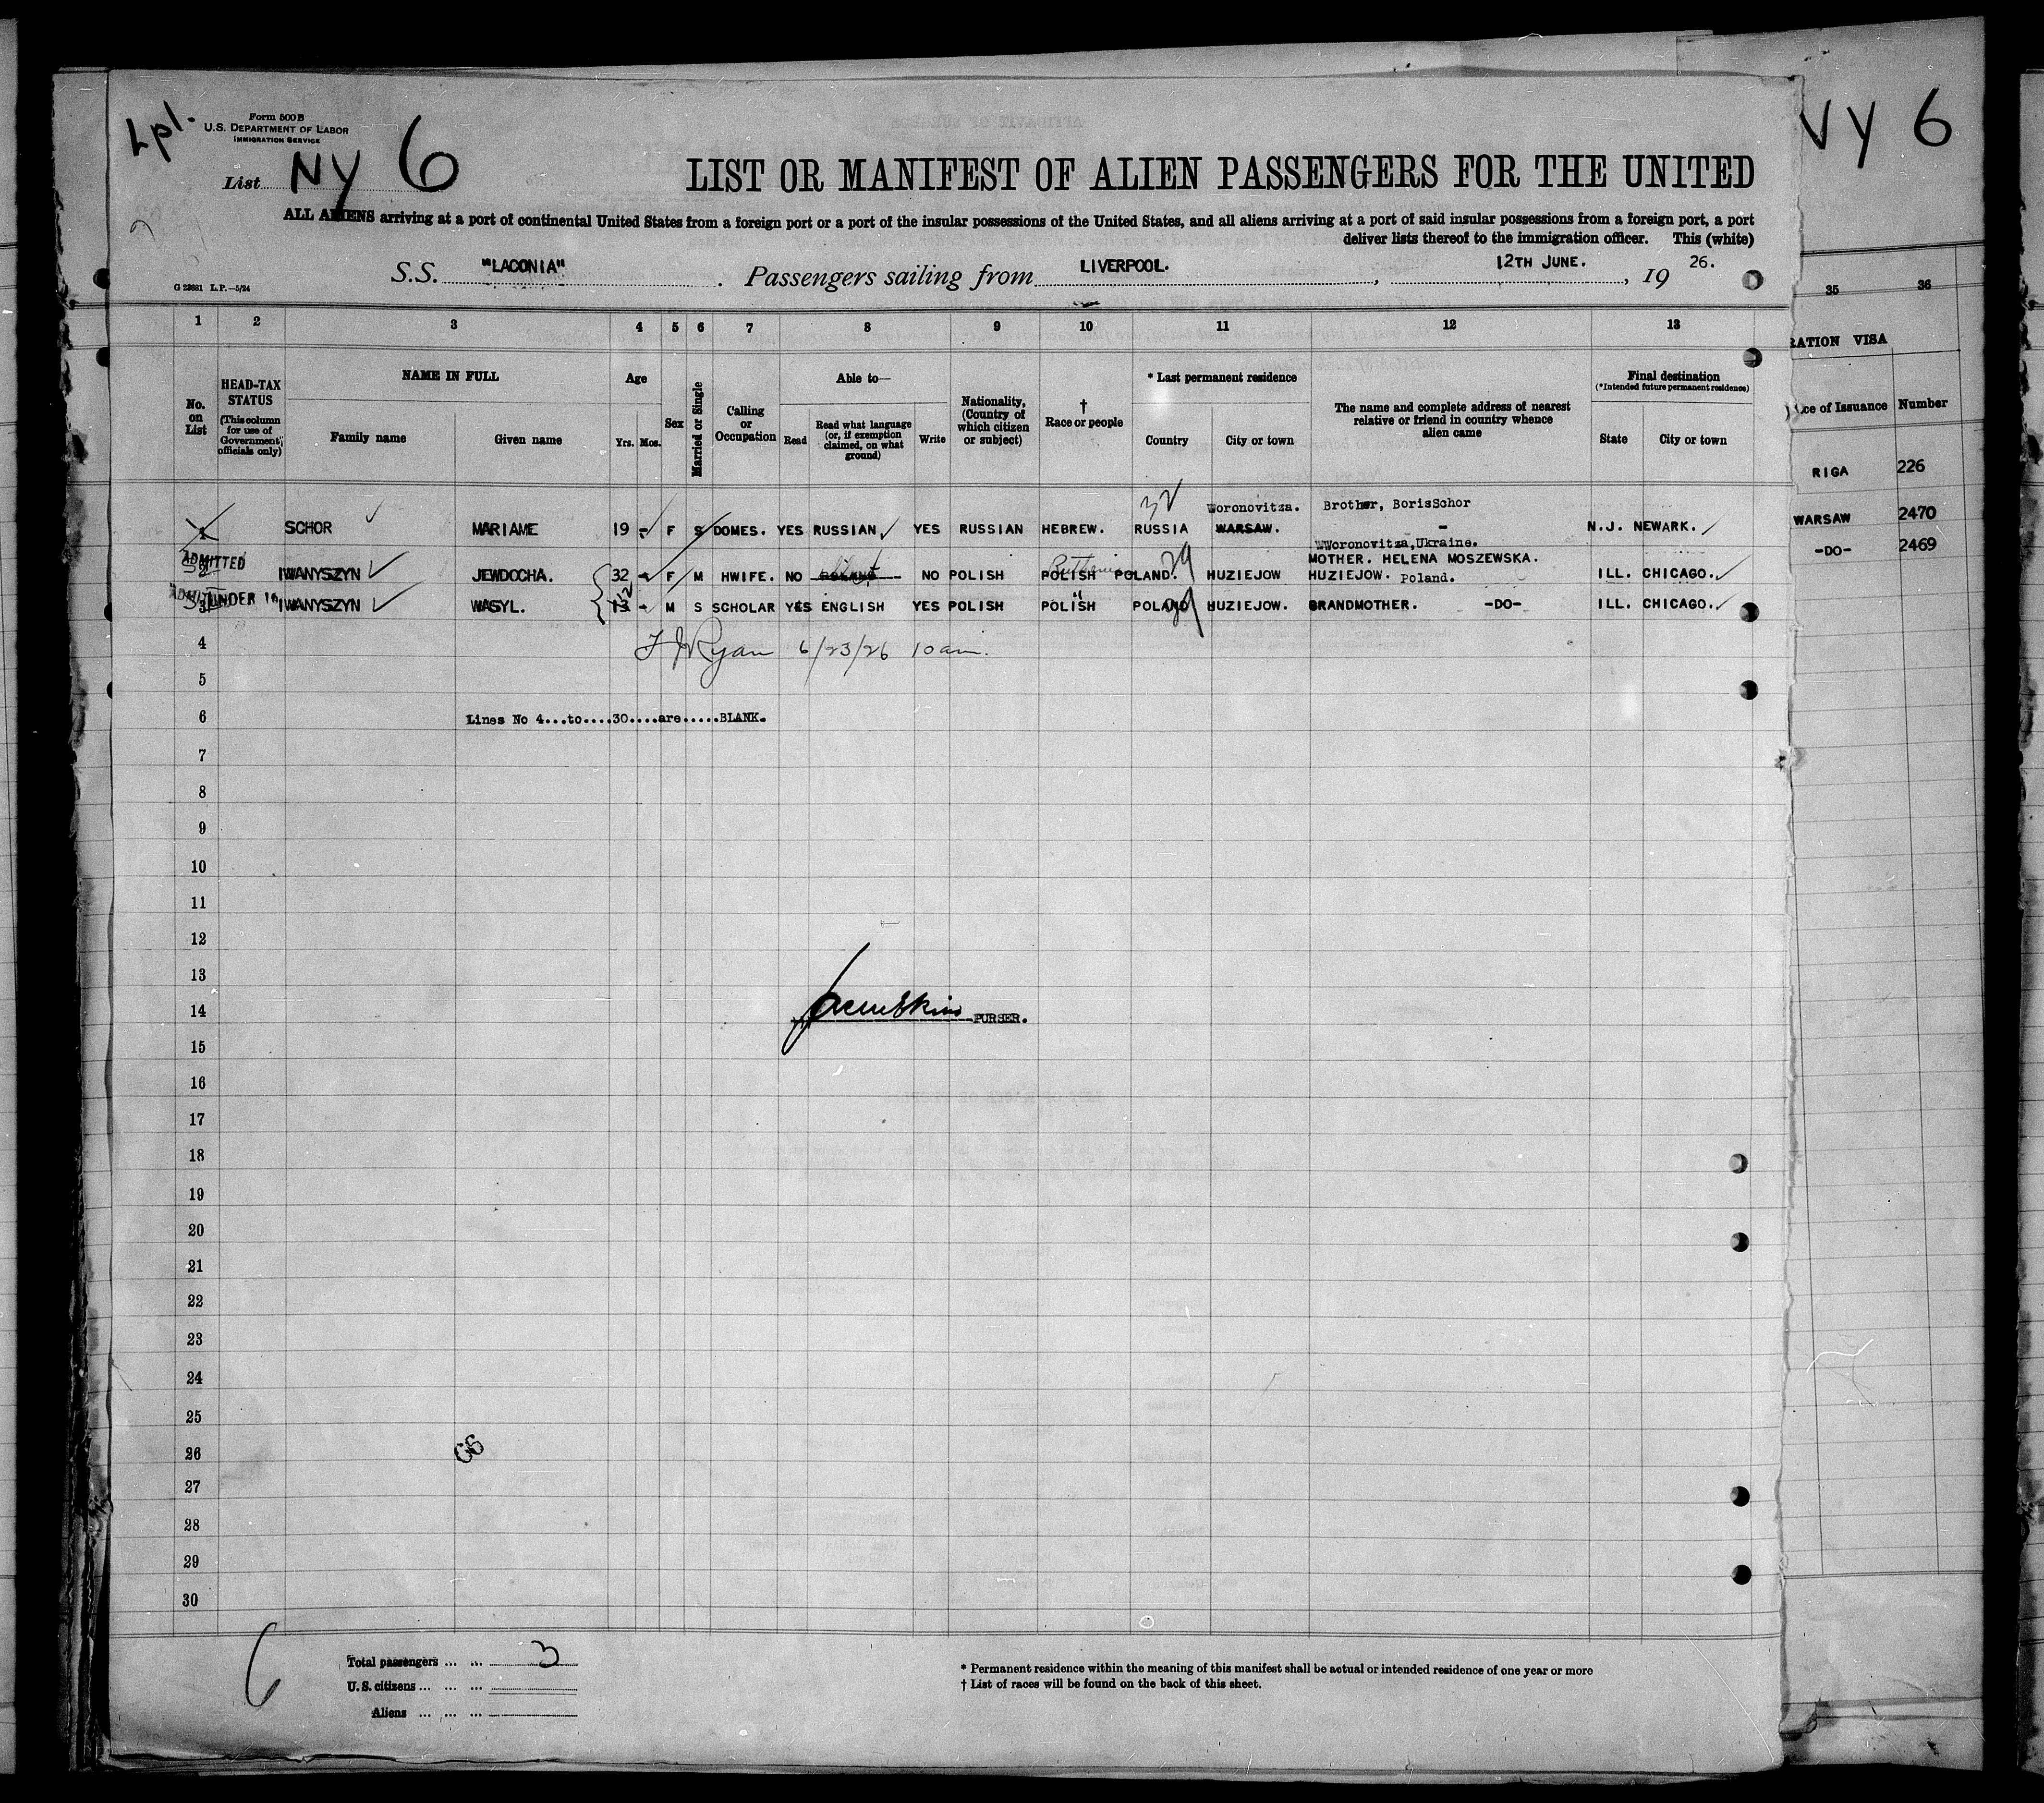 Lpl.
Form 500 B
U.S. DEPARTMENT OF LABOR
IMMIGRATION SERVICE
List NY 6
NY 6
LIST OR MANIFEST OF ALIEN PASSENGERS FOR THE UNITED
ALL ALIENS arriving at a port of continental United States from a foreign port or a port of the insular possessions of the United States, and all aliens arriving at a port of said insular possessions from a foreign port, a port
deliver lists thereof to the immigration officer. This (white)
S.S. "LACONIA". Passengers sailing from LIVERPOOL., 12TH JUNE., 19 26.
G 23881 L.P.—5/24
1 2 3 4 5 6 7 8 9 10 11 12 13 35 36
No. on List
HEAD-TAX STATUS (This column for use of Government officials only)
NAME IN FULL
Family name Given name
Age
Yrs. Mos.
Sex
Married or Single
Calling or Occupation
Able to—
Read
Read what language (or, if exemption claimed, on what ground)
Write
Nationality, (Country of which citizen or subject)
† Race or people
* Last permanent residence
Country City or town
The name and complete address of nearest relative or friend in country whence alien came
Final destination
(*Intended future permanent residence)
State City or town
RATION VISA
ce of Issuance Number
RIGA 226
WARSAW 2470
-DO- 2469
32 Woronovitza. Brother, BorisSchor
SCHOR MARIAME 19 - F S DOMES. YES RUSSIAN YES RUSSIAN HEBREW. RUSSIA WARSAW. - N.J. NEWARK.
WWoronovitza, Ukraine.
ADMITTED MOTHER. HELENA MOSZEWSKA.
IWANYSZYN JEWDOCHA. 32 - F M HWIFE. NO NO POLISH POLISH POLAND. HUZIEJOW HUZIEJOW. Poland. ILL. CHICAGO.
ADMITTED UNDER 16
3 IWANYSZYN WASYL. 13 - M S SCHOLAR YES ENGLISH YES POLISH POLISH POLAND HUZIEJOW. GRANDMOTHER. -DO- ILL. CHICAGO.
4 Ryan 6/23/26 10 am.
5
6 Lines No 4...to....30....are.....BLANK.
7
8
9
10
11
12
13
14 PURSER.
15
16
17
18
19
20
21
22
23
24
25
26
27
28
29
30
6
Total passengers ... ... 3
U.S. citizens ... ... ...
Aliens ... ... ...
* Permanent residence within the meaning of this manifest shall be actual or intended residence of one year or more
† List of races will be found on the back of this sheet.